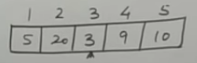 1 2 3 4 5
5 20 3 9 10